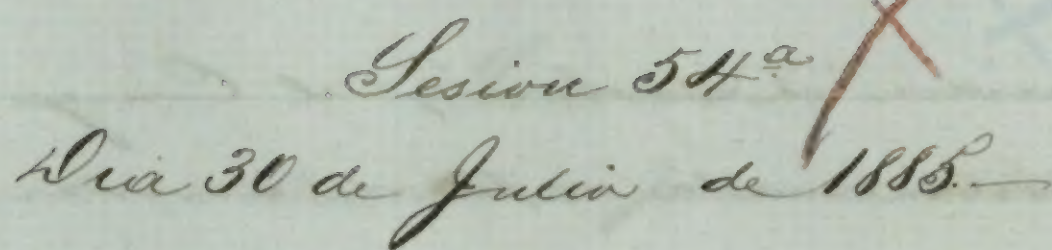 Sesion 54ª
Dia 30 de Julio de 1885.—